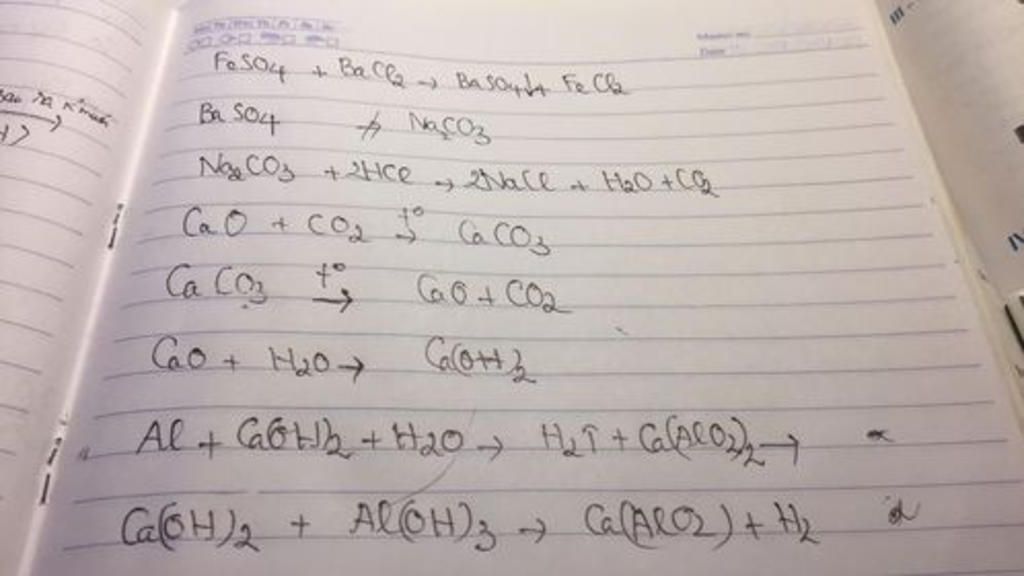 FeSO4 + BaCl2 → BaSO4↓+ FeCl2
BaSO4 ↛ Na2CO3
Na2CO3 + 2HCl → 2NaCl + H2O + CO2
CaO + CO2 t°→ CaCO3
CaCO3 t°→ CaO + CO2
CaO + H2O → Ca(OH)2
Al + Ca(OH)2 + H2O → H2↑ + Ca(AlO2)2 →
Ca(OH)2 + Al(OH)3 → Ca(AlO2) + H2